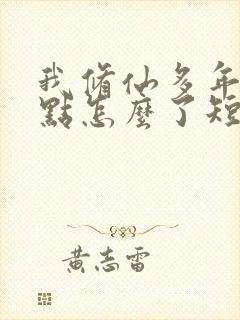 我修仙多年
點怎麼了短
黃志雷